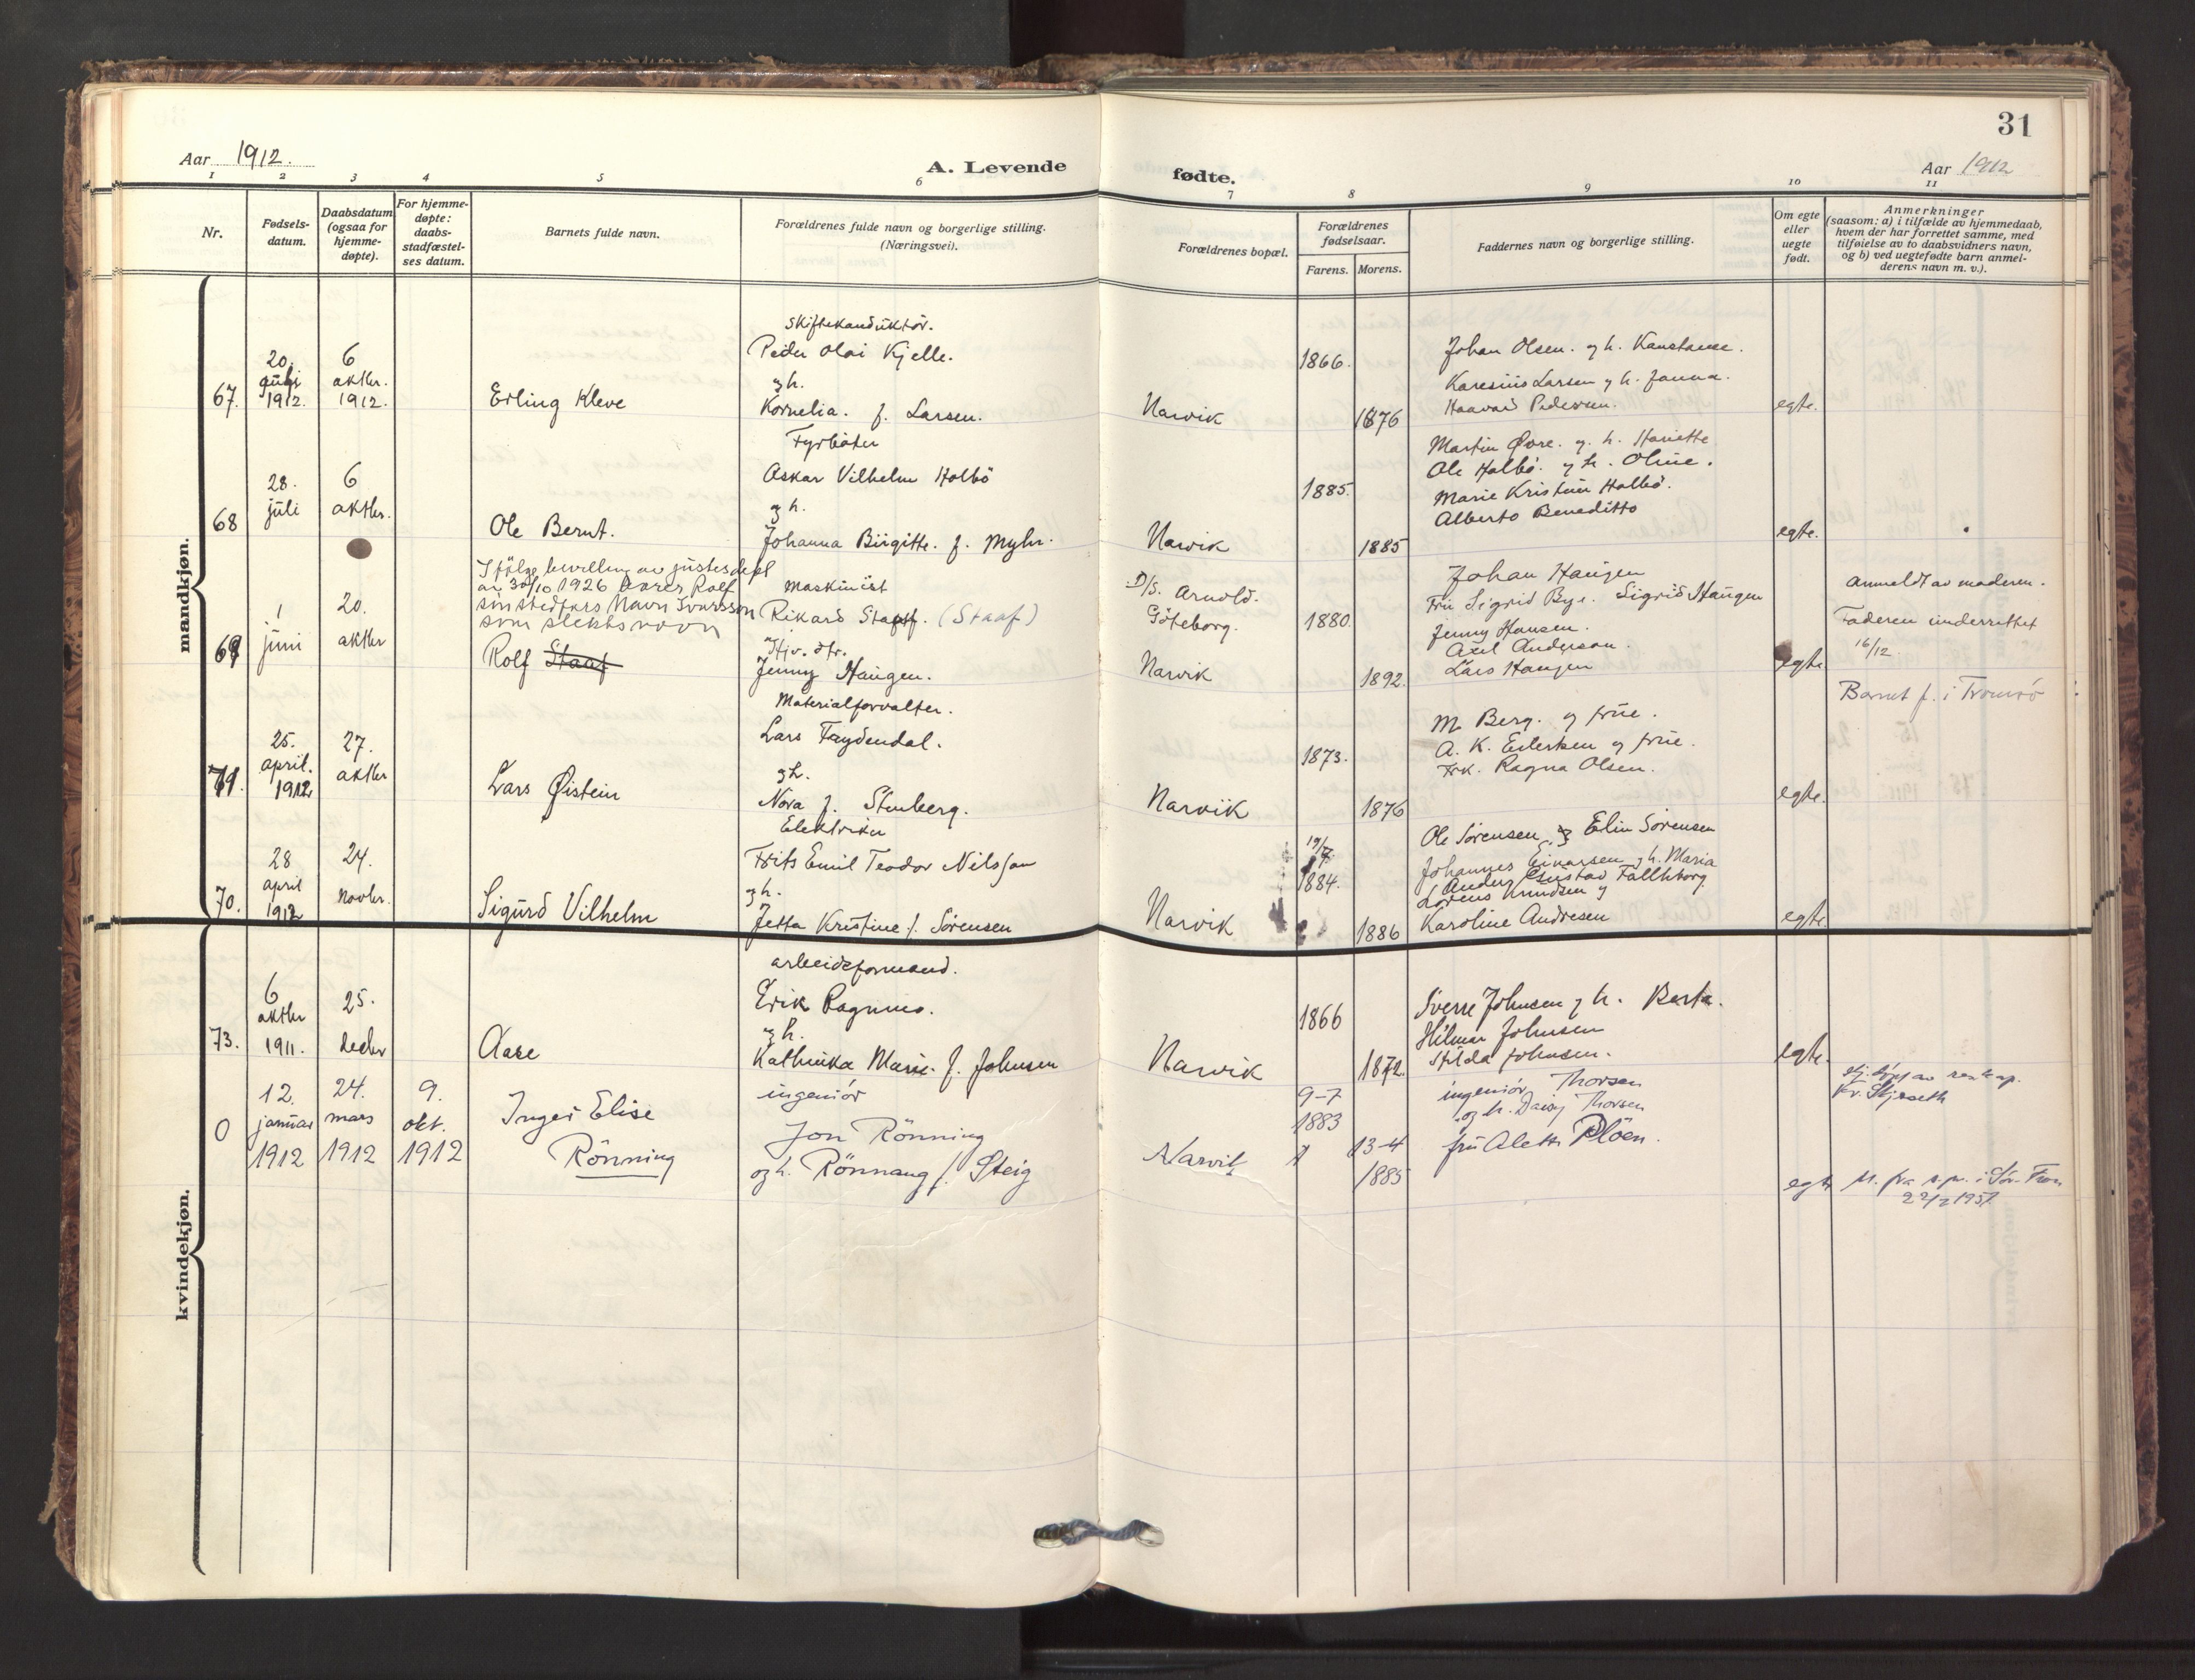 31
Aar 1912.
A. Levende
fødte.
Aar 1912
1 2 3 4 5 6 7 8 9 10 11
Nr.
Fødsels-
datum.
Daabsdatum
(ogsaa for
hjemme-
døpte).
For hjemme-
døpte:
daabs-
stadfæstel-
ses datum.
Barnets fulde navn.
Forældrenes fulde navn og borgerlige stilling.
(Næringsvei).
Forældrenes bopæl.
Forældrenes
fødselsaar.
Farens. Morens.
Faddernes navn og borgerlige stilling.
Om egte
eller
uegte
født.
Anmerkninger
(saasom: a) i tilfælde av hjemmedaab,
hvem der har forrettet samme, med
tilføielse av to daabsvidners navn,
og b) ved uegtefødte barn anmel-
derens navn m. v.).
mandkjøn.
67.
20.
juli
1912.
6
oktbr.
1912.
Erling Kleve
Skiftekonduktør.
Peder Olai Kjelle.
og h.
Kornelia. f. Larsen.
Narvik
1866.
1876
Johan Olsen. og h. Konstanse.
Karesius Larsen og h. Janna.
Haavard Pedersen.
egte.
68
28.
juli
6
oktbr.
Ole Bernt.
Fyrbøter
Oskar Vilhelm Holbø
og h.
Johanna Birgitte. f. Myhr.
Narvik
1885.
1885
Martin Øvre. og h. Hariette
Ole Holbø. og h. Oline.
Marie Kristine Holbø.
Alberto Beneditto
egte.
69
1
juni
20.
oktbr
I følge bevilling av justisdept
av 30/10 1926 bærer Rolf
sin stedfars Navn Ivarsson
som slektsnavn
Rolf Staaf
Maskinist
Rikard Staff. (Staaf)
og Hjv. dtr.
Jenny Haugen.
D/S. Arnold.
Göteborg.
Narvik
1880.
1892.
Johan Haugen
Fru Sigrid Bye. Sigrid Haugen
Jenny Hansen.
Axel Anderson.
Lars Haugen
egte
Anmeldt av moderen.
Faderen underrettet
16/12.
Barnet f. i Tromsø
71.
25.
april.
1912
27.
oktbr
Lars Øistein
Materialforvalter.
Lars Faydendal.
og h.
Nora f. Stenberg.
Narvik
1873.
1876
M. Berg. og frue.
A. K. Eilertsen og frue.
Frk. Ragna Olsen.
egte.
70.
28
april
1912
24.
novbr.
Sigurd Vilhelm
Elektriker
Frits Emil Teodor Nilsson
og h.
Jetta Kristine f. Sørensen
Narvik
19/7.
1884.
1886
Ole Sørensen, og Elin Sørensen
Johannes Eivarsen og h. Maria
Anders Gustav Fallhborg.
Lorens Knudsen og
Karoline Andresen
egte.
kvindekjøn.
73.
6
oktbr
1911.
25.
decbr
Aase
arbeidsformand.
Erik Ragnmo.
og h.
Kathinka Marie. f. Johnsen
Narvik
1866
1872.
Sverre Johnsen og h. Berta.
Hilmar Johnsen
Hilda Johnsen.
egte.
0
12.
januar
1912
24.
mars
1912
9.
okt.
1912
Inger Elise
Rönning
ingeniør
Jon Rönning
og h. Rönnaug f. Steig
Narvik
9-7
1883
13-4
1885
ingeniør Thorsen
og h. Daisy Thorsen
fru Aleth Plöen.
egte
hj. døpt av res. kap.
Kv. Skjeseth
M. fra s.pr. i Sör-Fron
22/2 1957.